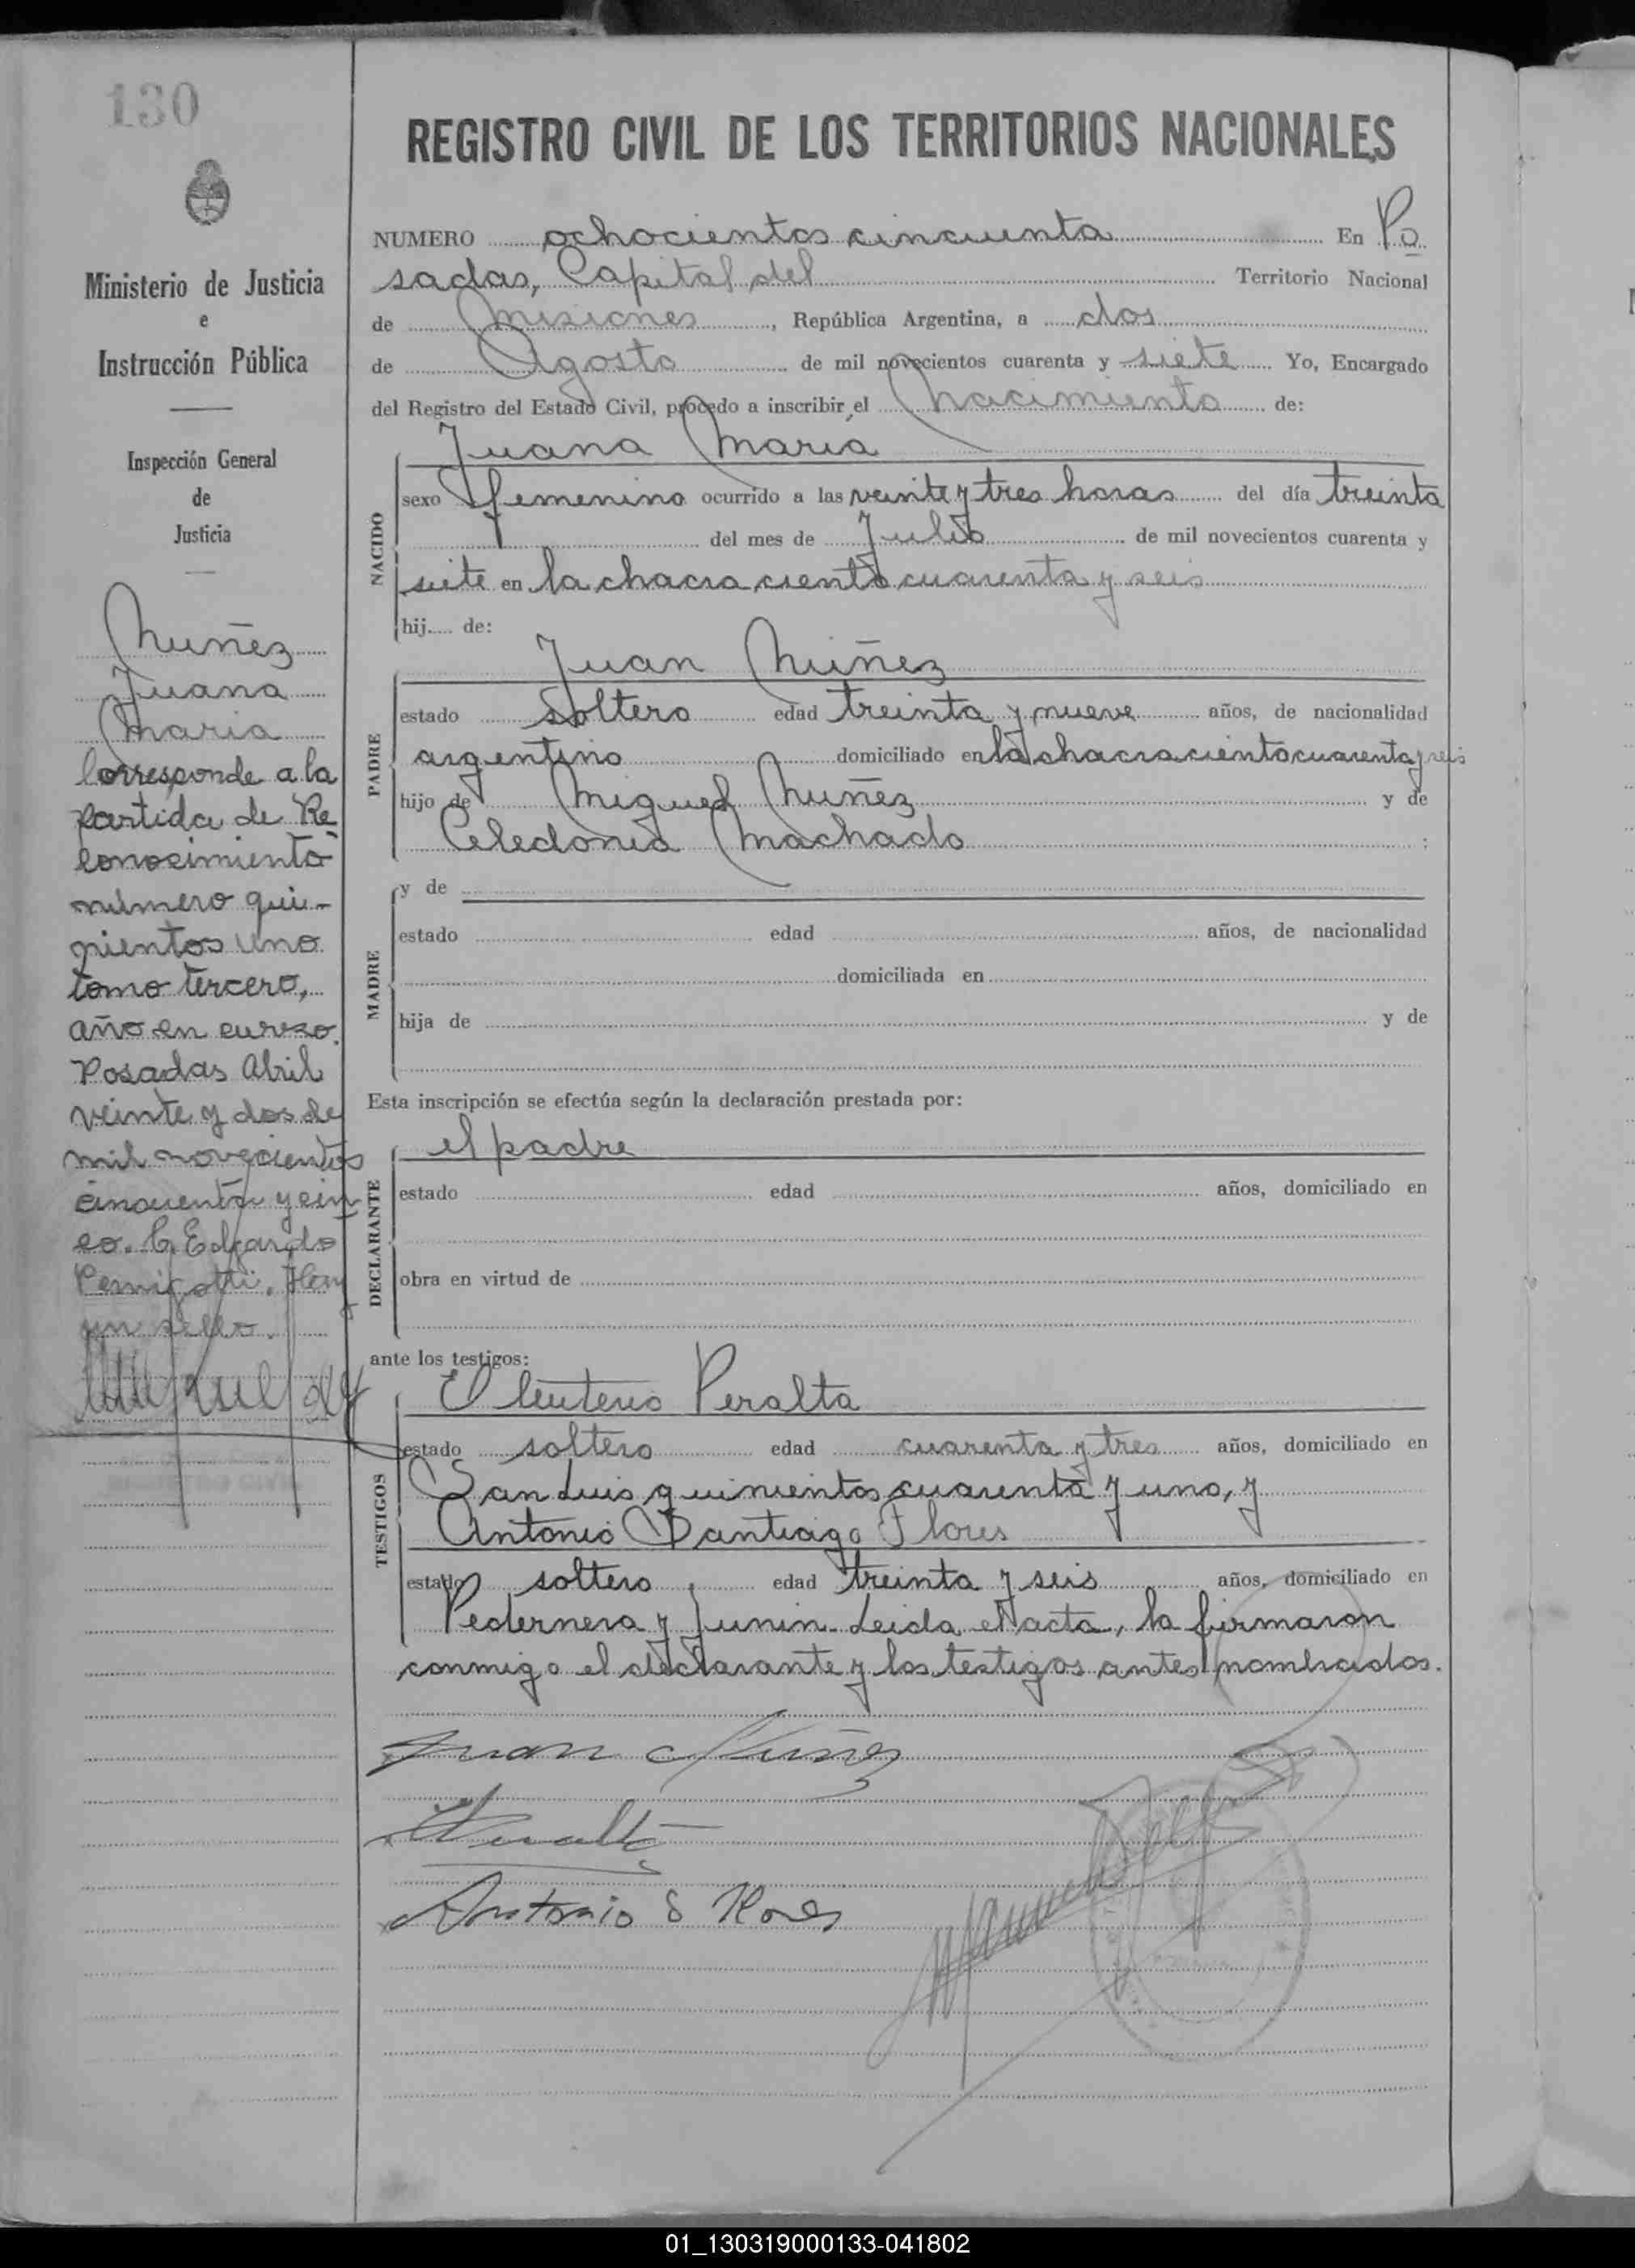 130
Ministerio de Justicia
e
Instrucción Pública
Inspección General
de
Justicia
Nuñez
Juana
Maria
Corresponde a la
partida de Re
conocimiento
número qui-
nientos uno
tomo tercero,
año en curso.
Posadas Abril
veinte y dos de
mil novecientos
cincuenta y cin
co. C. Edgardo
Pernigotti. Hay
un sello.
REGISTRO CIVIL DE LOS TERRITORIOS NACIONALES
NUMERO ochocientos cincuenta En Po
sadas, Capital del Territorio Nacional
de Misiones, República Argentina, a dos
de Agosto de mil novecientos cuarenta y siete Yo, Encargado
del Registro del Estado Civil, procedo a inscribir el Nacimiento de:
Juana María
NACIDO
sexo femenino ocurrido a las veinte y tres horas del día treinta
del mes de Julio de mil novecientos cuarenta y
siete en la chacra ciento cuarenta y seis
hij de:
Juan Núñez
PADRE
estado soltero edad treinta y nueve años, de nacionalidad
argentino domiciliado en la chacra ciento cuarenta y seis
hijo de Miguel Nuñez y de
Celedonia Machado :
MADRE
y de
estado edad años, de nacionalidad
domiciliada en
hija de y de
Esta inscripción se efectúa según la declaración prestada por:
el padre
DECLARANTE
estado edad años, domiciliado en
obra en virtud de
ante los testigos:
Eleuterio Peralta
TESTIGOS
estado soltero edad cuarenta y tres años, domiciliado en
San Luis quinientos cuarenta y uno, y
Antonio Santiago Flores
estado soltero, edad treinta y seis años, domiciliado en
Pedernera y Junin. Leida el acta, la firmaron
conmigo el declarante y los testigos antes nombrados.
Juan Núñez
Peralta
Antonio S Flores
01_130319000133-041802